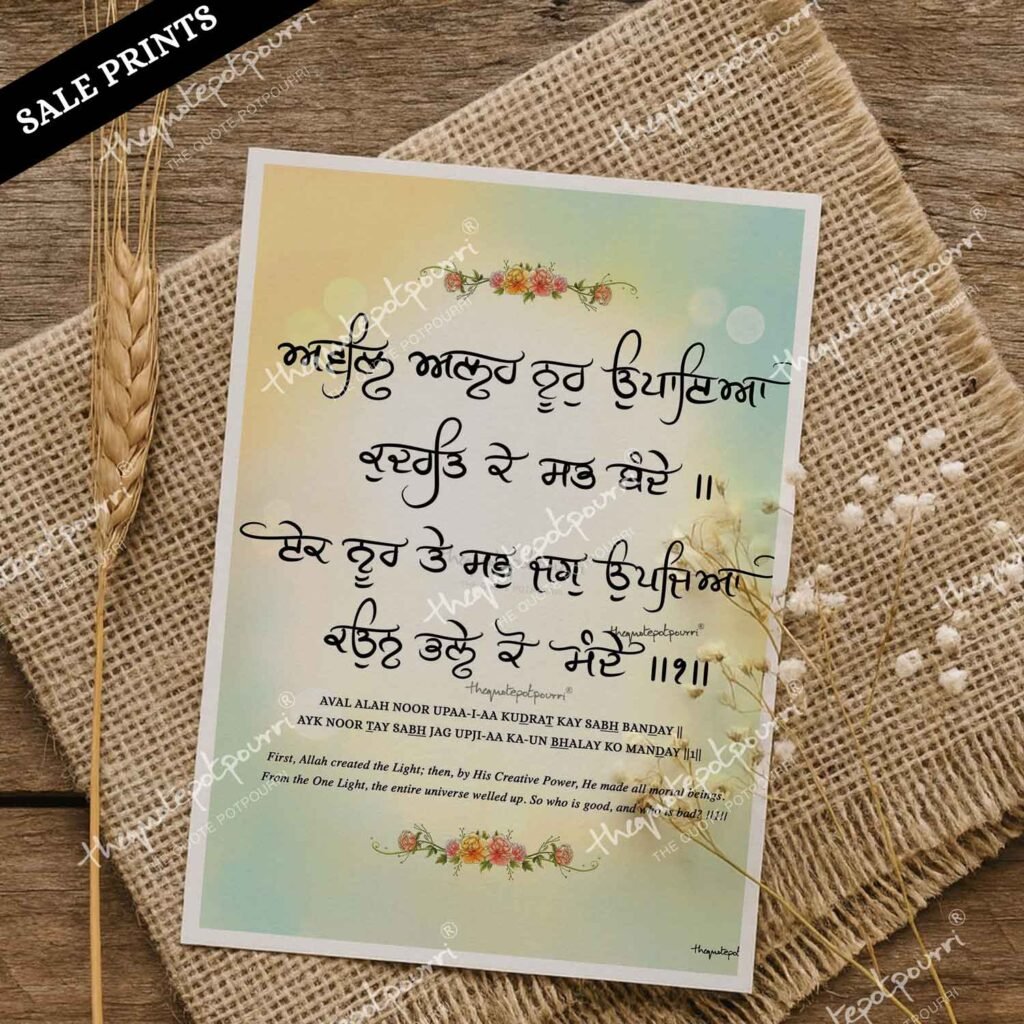 SALE PRINTS
ਅਵਲਿ ਅਲਹ ਨੂਰੁ ਉਪਾਇਆ
ਕੁਦਰਤਿ ਕੇ ਸਭ ਬੰਦੇ ॥
ਏਕ ਨੂਰ ਤੇ ਸਭੁ ਜਗੁ ਉਪਜਿਆ
ਕਉਨ ਭਲੇ ਕੋ ਮੰਦੇ ॥੧॥
thequotepotpourri®
thequotepotpourri®
AVAL ALAH NOOR UPAA-I-AA KUDRAT KAY SABH BANDAY ||
AYK NOOR TAY SABH JAG UPJI-AA KA-UN BHALAY KO MANDAY ||1||
First, Allah created the Light; then, by His Creative Power, He made all mortal beings.
From the One Light, the entire universe welled up. So who is good, and who is bad? ||1||
thequotepot
thequotepotpourri®
THE QUOTE POTPOURRI